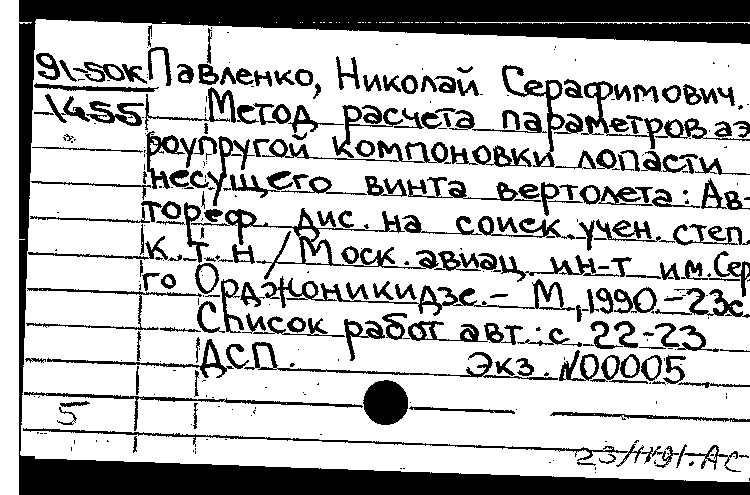 91-50К Павленко, Николай Серафимович.
1455 Метод расчета параметров аэ
роупругой компоновки лопасти
несущего винта вертолета: Ав-
тореф. дис. на соиск. учен. степ.
к. т. н / Моск. авиац. ин-т им. Сер
го Орджоникидзе. - М., 1990. - 23с.
Список работ авт.: с. 22-23
ДСП. Экз. N00005
5